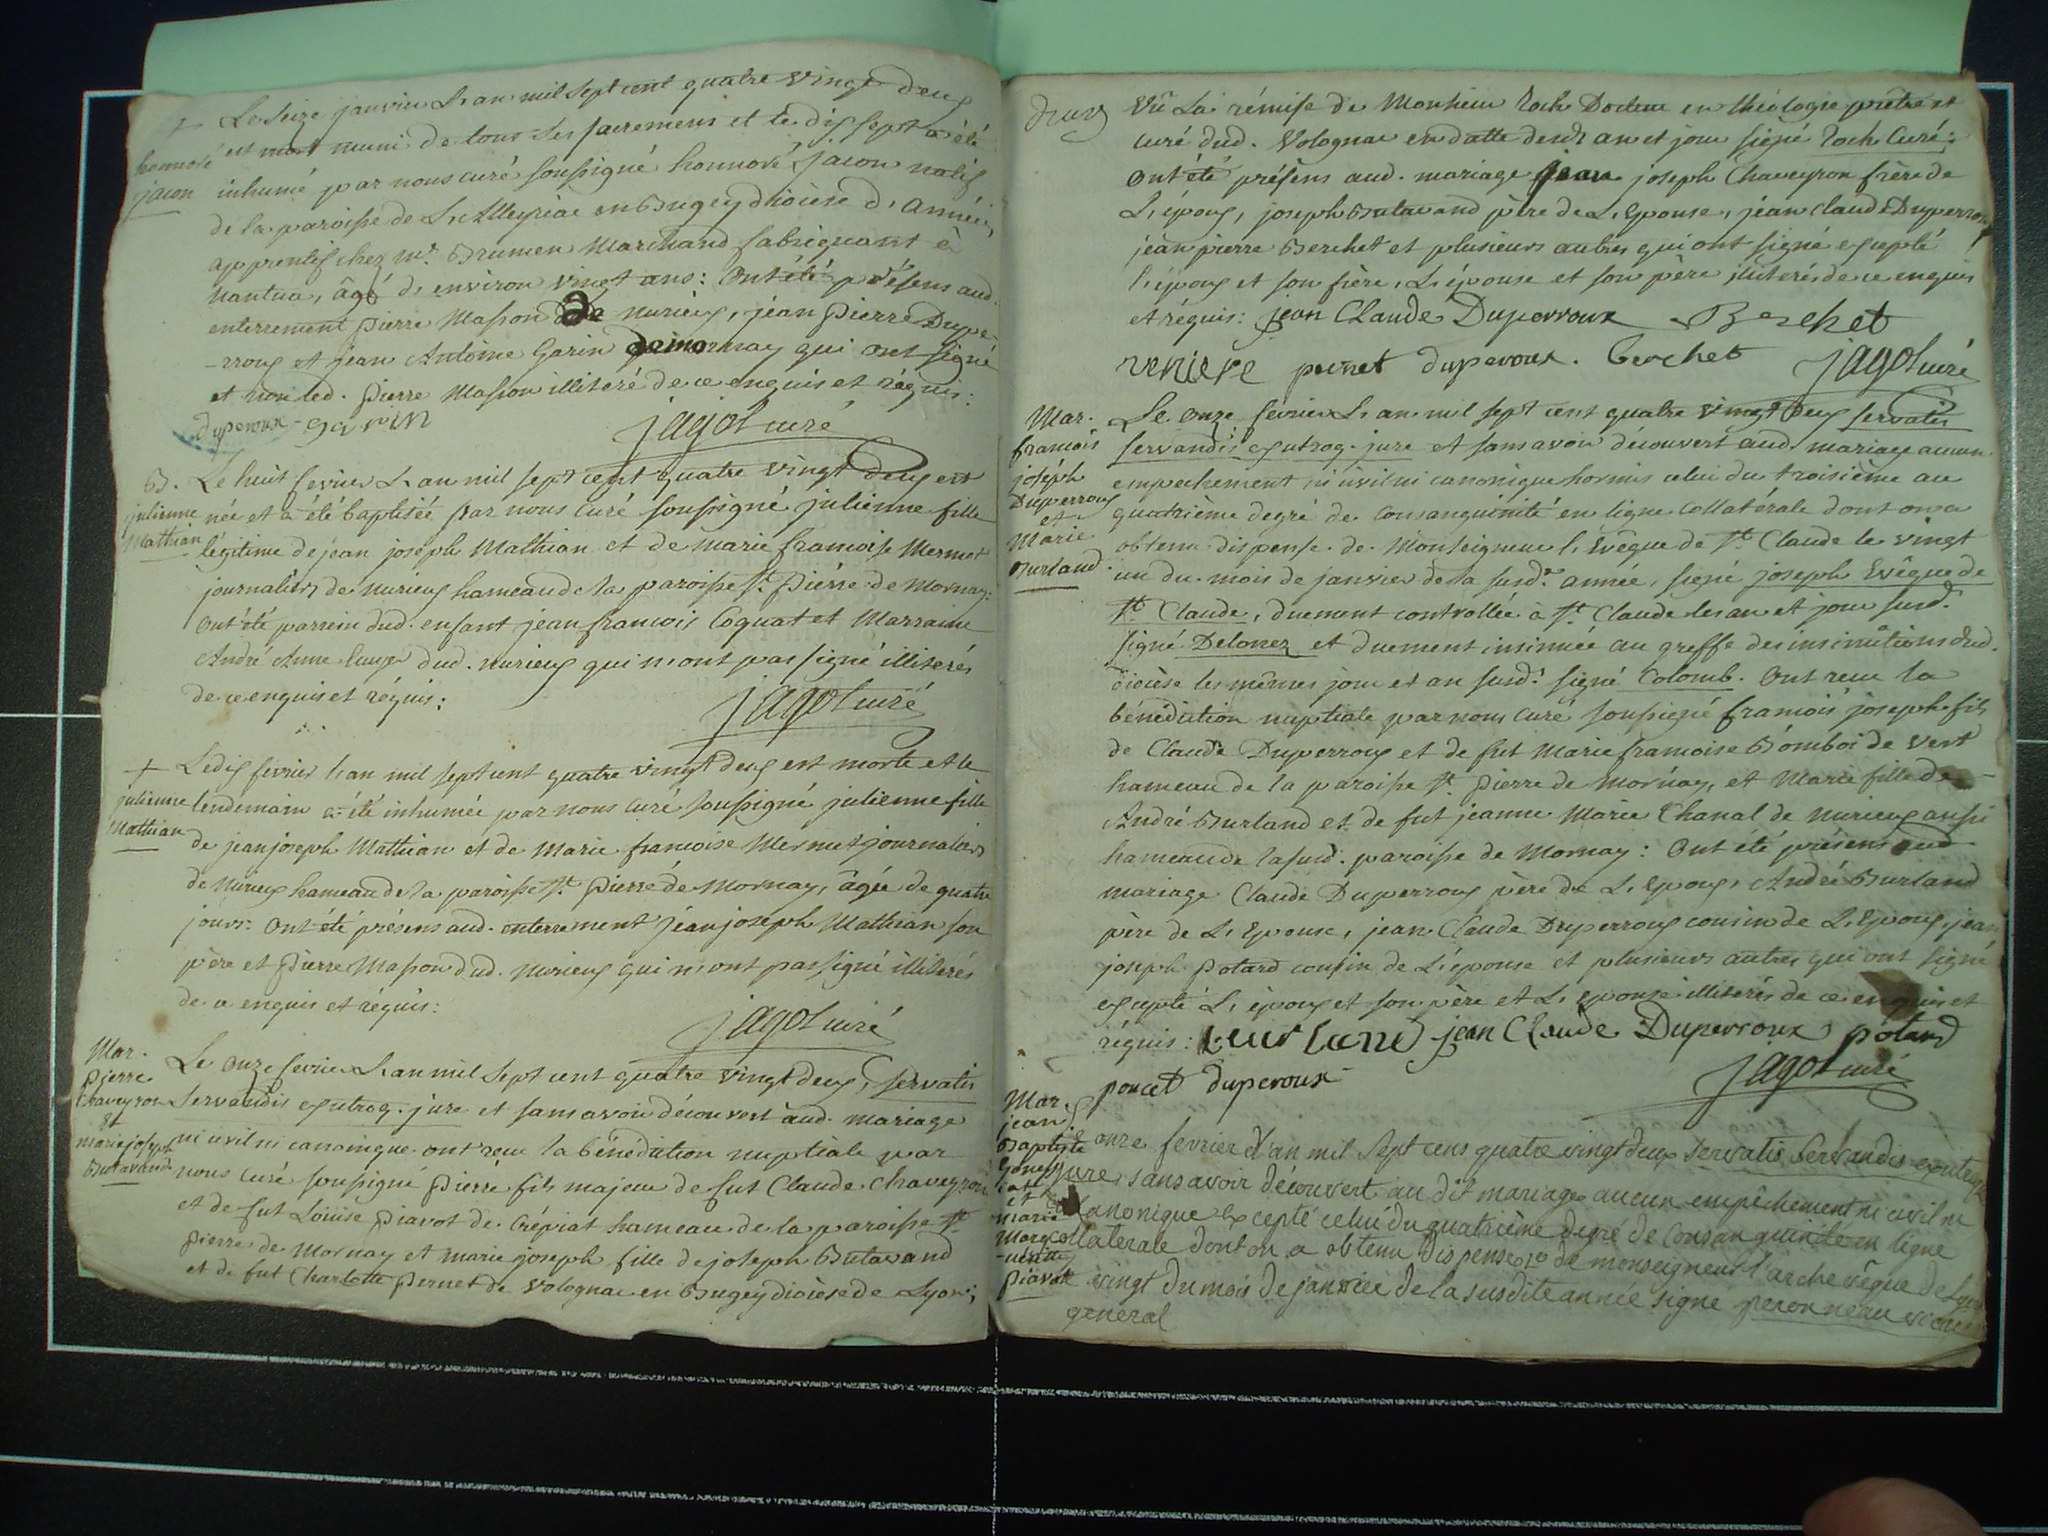 Le Seize janvier L'an mil sept cent quatre vingt deux
+
honnoré
jacon
est mort muni de tous les sacremens et le dix sept a été
inhumé par nous curé soussigné honnoré jacon natif
de la paroisse de en Bugey diocèse d'
apprentif chez mr. Brumen Marchand fabriquant à
nantua, âgé d'environ vingt ans: Ont été présens aud.
enterrement pierre Masson de nurieux, jean pierre Dupe-
-rroux et jean Antoine Garin de mornay qui ont signé
et non led. pierre Masson illiteré de ce enquis et réquis:
duperoux garin jagot curé
B.
julienne
Mathian
Le huit fevrier L'an mil sept cent quatre vingt deux est
née et a été baptisée par nous curé soussigné julienne fille
légitime de jean joseph Mathian et de marie francoise Mermet
journaliers de nurieux hameau de la paroisse st. pierre de Mornay:
Ont été parrein dud. enfant jean francois Coquat et Marraine
André Anne dud. nurieux qui n'ont pas signé illiterés
de ce enquis et réquis:
jagot curé
+
julienne
Mathian
Le dix fevrier l'an mil sept cent quatre vingt deux est morte et le
lendemain a été inhumée par nous curé soussigné julienne fille
de jean joseph Mathian et de Marie francoise Mermet journaliers
de Nurieux hameau de la paroisse st. pierre de Mornay, âgée de quatre
jours: Ont été présens aud. enterrement jean joseph Mathian son
père et pierre Masson dud. nurieux qui n'ont pas signé illiterés
de ce enquis et réquis:
jagot curé
Mar.
pierre
Chaveyron
et
marie joseph
Butavand
Le onze fevrier L'an mil sept cent quatre vingt deux, servatis
servandis ex utroq. jure et sans avoir découvert aud. mariage
ni civil ni canonique ont recu la bénédiction nuptiale par
nous curé soussigné pierre fils majeur de fut Claude Chaveyron
et de fut Louise piavot de Crépiat hameau de la paroisse st.
pierre de Mornay et marie joseph fille de joseph Butavand
et de fut Charlotte pernet de Volognac en Bugey diocèse de Lyon;
Vû La rémise de Monsieur Roch Docteur en théologie prêtre et
curé dud. Volognac en datte desd. an et jour signé Roch Curé:
Ont été présens aud. mariage jean joseph Chaveyron frère de
L'époux, joseph Butavand père de L'Epouse, jean Claude Duperroux
jean pierre Berchet et plusieurs autres qui ont signé excepté
l'époux et son frère, L'épouse et son père illiterés de ce enquis
et réquis: jean Claude Duperroux Berchet
pernet duperoux. berchet jagot curé
Mar.
francois
joseph
Duperroux
et
Marie
Burland.
Le onze fevrier L'an mil sept cent quatre vingt deux servatis
servandis ex utroq. jure et sans avoir découvert aud. mariage aucun
empechement ni civil ni canonique hormis celui du troisième au
quatrième degré de consanguinité en ligne collatérale dont on a
obtenu dispense de Monseigneur l'Evêque de st. Claude le vingt
un du mois de janvier de la susd. année, signé joseph Evêque de
st. Claude, duement controllée à st. Claude les an et jour susd.
signé Delonez et duement insinuée au greffe des insinuations dud.
diocèse les mêmes jour et an susd. signé Colomb. Ont recu la
bénédiction nuptiale par nous curé soussigné francois joseph fils
de Claude Duperroux et de fut Marie francoise Bomboi de Vert
hameau de la paroisse st. pierre de Mornay, et Marie fille de
André Burland et de fut jeanne Marie Chanal de nurieux aussi
hameau de la susd. paroisse de Mornay: Ont été présens aud.
mariage Claude Duperroux père de L'Epoux, André Burland
père de L'Epouse, jean Claude Duperroux cousin de L'Epoux, jean
joseph potard cousin de L'épouse et plusieurs autres qui ont signé
excepté L'époux et son père et L'épouse illiterés de ce enquis et
réquis: jean Claude Duperroux potard
poncet duperoux jagot curé
Mar.
jean
Baptiste
et
marie
Margue
-ritte
piavot
onze fevrier L'an mil sept cens quatre vingt deux servatis servandis ex utroq
jure, sans avoir découvert au dit mariage aucun empêchement ni civil ni
canonique excepté celui du quatrième degré de consanguinité en ligne
collaterale dont on a obtenu dispense 1o de monseigneur l'archevêque de Lyon
vingt du mois de janvier de la susdite année signé peronneau vicaire
general